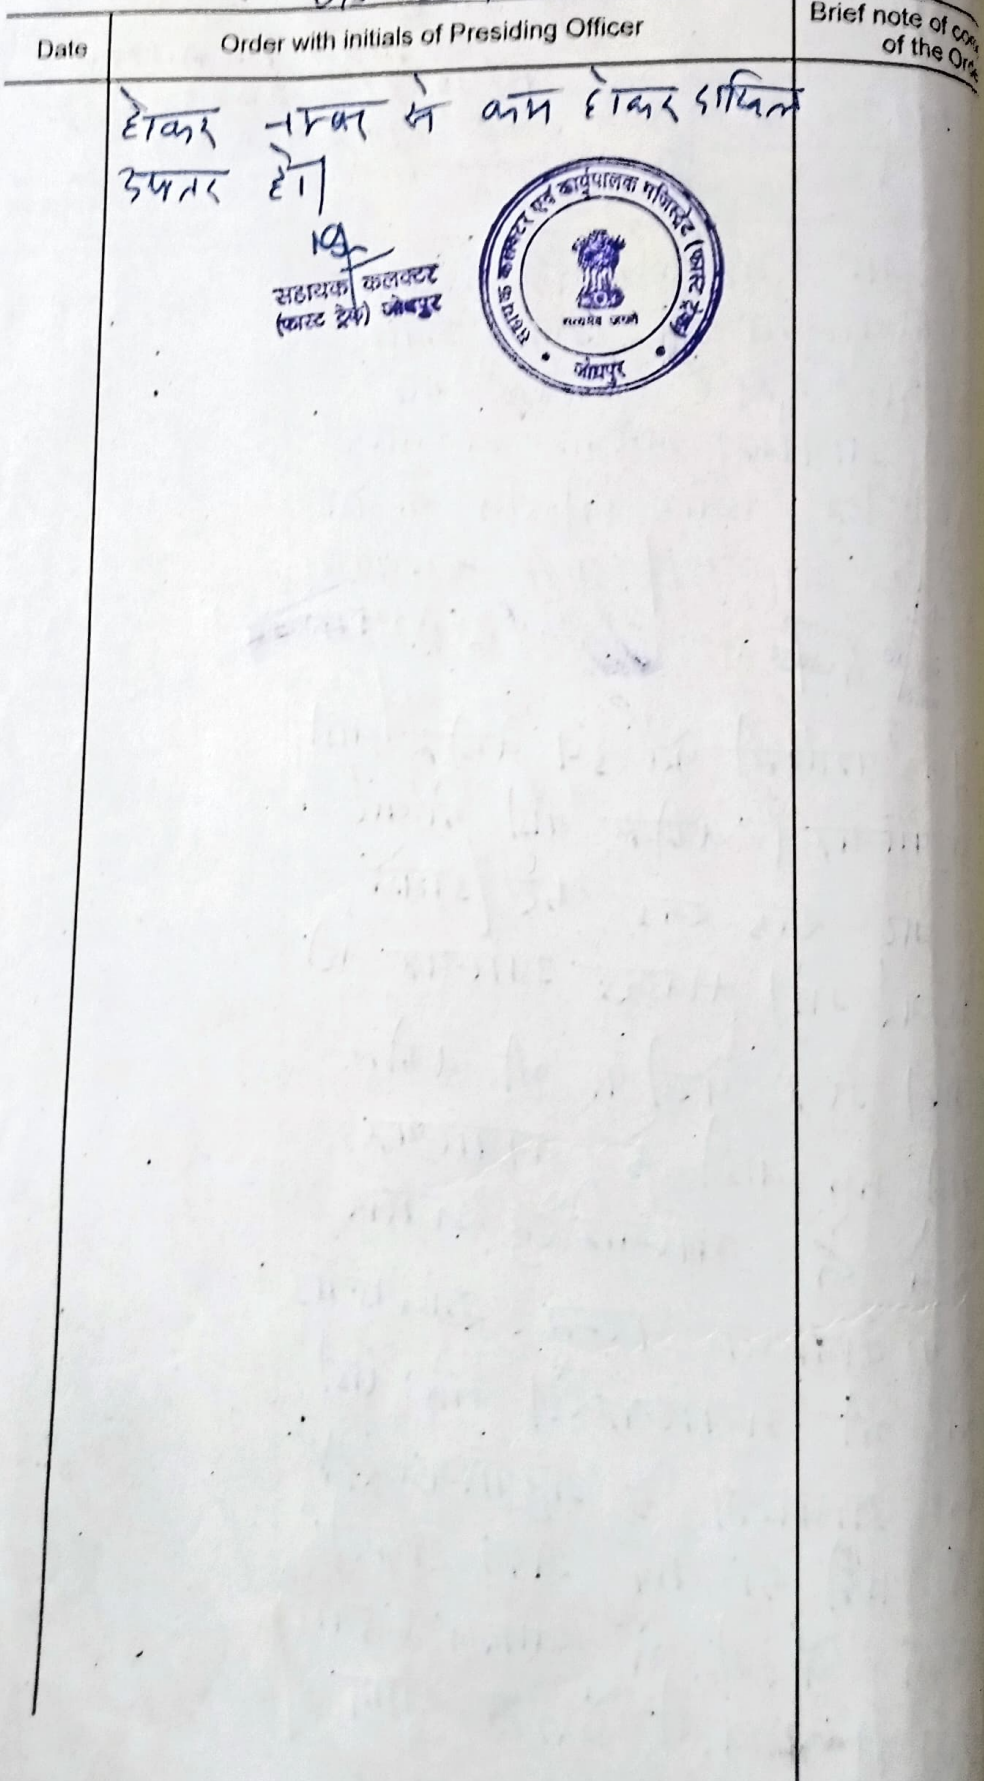 Date
Order with initials of Presiding Officer
Brief note of
of the
होकर नम्बर से कम होकर दाखिल
दफ्तर हो।
सहायक कलक्टर
(फास्ट ट्रेक) जोधपुर
सहायक कलक्टर एवं कार्यपालक मजिस्ट्रेट (फास्ट ट्रेक)
सत्यमेव जयते
जोधपुर